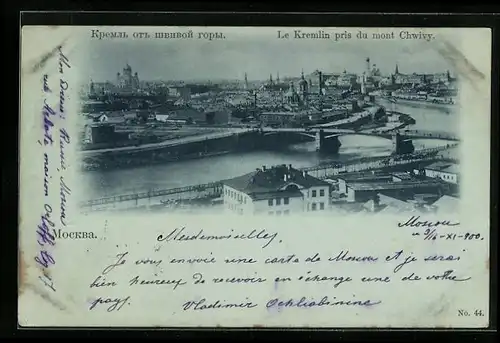 Кремль отъ швивой горы.
Le Kremlin pris du mont Chwivy.
Mon adresse: Russie, Moscou
rue Arbate, maison Orloff, log. 17
Москва.
Moscou
le 3/16-XI-900.
Mesdemoiselles,
Je vous envoir une carte de Moscou et je serai
bien heureux de recevoir en échange une de votre
pays. Vladimir Ochliabinine
No. 44.